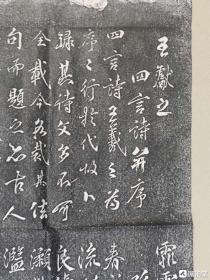 王獻之
四言詩并序
四言詩王羲之為
序〻行於代故不
錄其詩文多不可
全載今各裁其佳
句而題之亦古人
春
流
良
濫